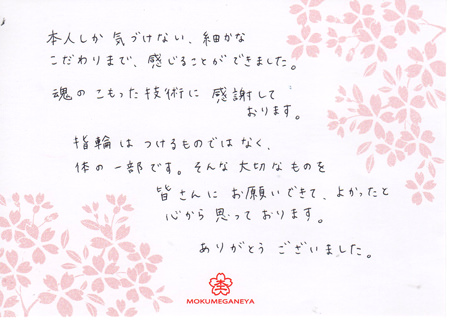 本人しか気づけない、細かな
こだわりまで、感じることができました。
魂のこもった技術に感謝して
おります。
指輪はつけるものではなく、
体の一部です。そんな大切なものを
皆さんにお願いできて、よかったと
心から思っております。
ありがとうございました。
MOKUMEGANEYA